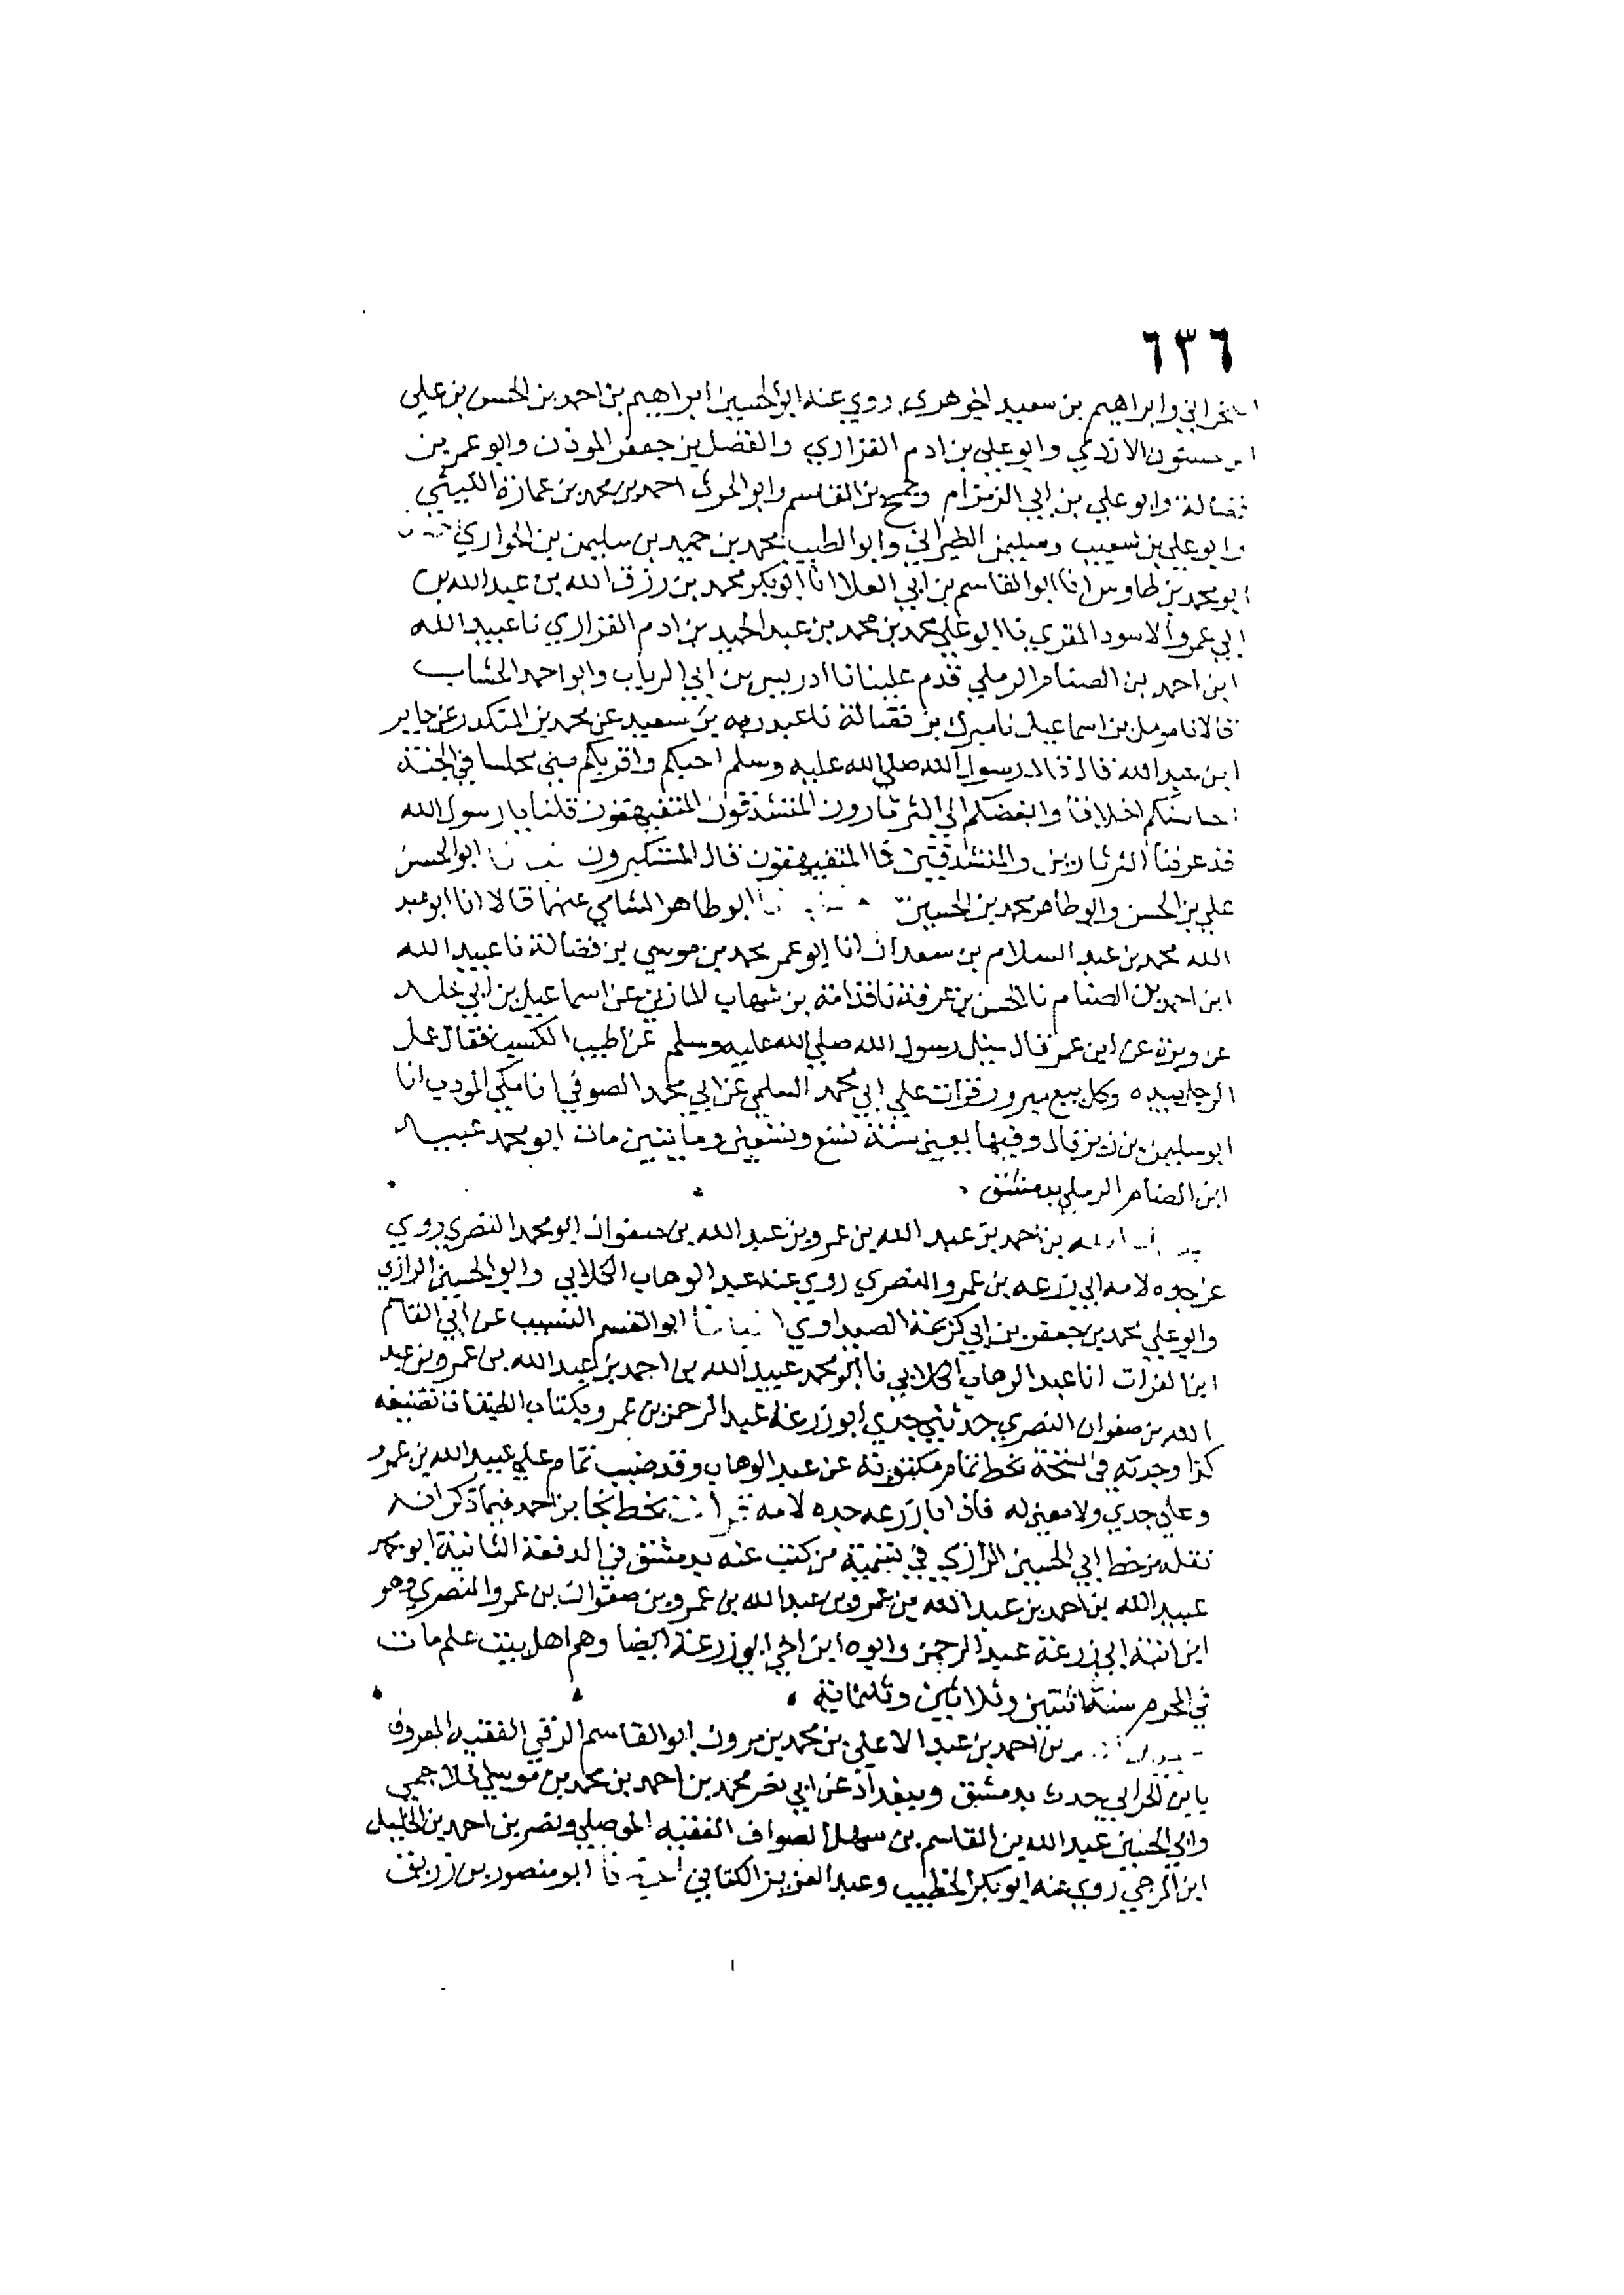 ٦٣٦
وابراهيم بن سعيد الجوهري روي عنه ابو الحسين ابراهيم بن احمد بن الحسن بن علي
الازدي وابو علي بن ادم الفزاري والفضل بن جعفر الموذن وابو عمر بن
فضالة وابو علي بن ابي الزمزام وجمح بن القاسم وابو الحرث احمد بن محمد بن عمارة الليثي
وابو علي بن شعيب وسليمن الطبراني وابو الطيب محمد بن حميد بن سليمن بن الحواري
ابو محمد بن طاوس انا ابو القاسم بن ابي العلا انا ابو بكر محمد بن رزق الله بن عبد الله بن
ابي عمرو الاسود المقري نا ابو علي محمد بن محمد بن عبد الحميد بن ادم الفزاري نا عبيد الله
ابن احمد بن الصنام الرملي قدم علينا نا ادريس بن ابي الرباب وابو احمد الخشاب
قالا نا مومل بن اسماعيل نا مبرك بن فضالة نا عبد ربه بن سعيد عن محمد بن المنكدر عن جابر
ابن عبد الله قال قال رسول الله صلي الله عليه وسلم احبكم واقربكم مني مجلسا في الجنة
احاسنكم اخلاقا وابغضكم الي الثرثارون المتشدقون المتفيهقون قلنا يا رسول الله
قد عرفنا الثرثارين والمتشدقين فما المتفيهقون قال المتكبرون ابو الحسن
علي بن الحسن وابو طاهر محمد بن الحسين ابو طاهر المشامي عنهما قالا انا ابو عبد
الله محمد بن عبد السلام بن سعدان انا ابو عمر محمد بن موسي بن فضالة نا عبيد الله
ابن احمد بن الصنام نا الحسن بن عرفة نا قدامة بن شهاب المازني عن اسماعيل بن ابي خلد
عن وبرة عن ابن عمر قال سيل رسول الله صلي الله عليه وسلم عن اطيب الكسب فقال عمل
الرجل بيده وكل بيع مبرور قرات علي ابي محمد السلمي عن ابي محمد الصوفي انا مكي المودب انا
ابو سليمن بن زبر قال وفيها يعني سنة تسع وتسعين ومايتين مات ابو محمد عبيد
ابن الصنام الرملي بدمشق
بن احمد بن عبد الله بن عمرو بن عبد الله بن صفوان ابو محمد النصري روي
عن جده لامه ابي زرعه بن عمرو النصري روي عنه عبد الوهاب الكلابي وابو الحسين الرازي
وابو علي محمد بن جعفر بن ابي كريمة الصيداوي انبانا ابو القسم النسيب عن ابي القاسم
ابن الفرات انا عبد الوهاب الكلابي نا ابو محمد عبيد الله بن احمد بن عبد الله بن عمرو بن عبد
الله بن صفوان النصري حدثني جدي ابو زرعة عبد الرحمن بن عمرو بكتاب الطبقات تصنيفه
كذا وجدته في النسخة بخط تمام مكتوبة عن عبد الوهاب وقد ضبب تمام علي عبيد الله بن عمرو
وعلي جدي ولا معني له فان ابا زرعه جده لامه قرات بخط نجا بن احمد فيما ذكر انه
نقله من خط ابي الحسين الرازي في تسمية من كتب عنه بدمشق في الدفعة الثانية ابو محمد
عبيد الله بن احمد بن عبد الله بن عمرو بن عبد الله بن عمرو بن صفوان بن عمرو النصري وهو
ابن ابنة ابي زرعة عبد الرحمن وابوه ابن اخي ابي زرعة ايضا وهم اهل بيت علم مات
في المحرم سنة اثنتين وثلاثين وثلثماية
بن احمد بن عبد الاعلي بن محمد بن مرون ابو القاسم الرقي الفقيه المعروف
بابن الحراني حدث بدمشق وببغداد عن ابي نصر محمد بن احمد بن محمد بن موسي الملاحمي
وابي الحسين عبد الله بن القاسم بن سهل الصواف الفقيه الموصلي ونصر بن احمد بن الخليل
ابن المرجي روي عنه ابو بكر الخطيب وعبد العزيز الكتاني ابو منصور بن زريق